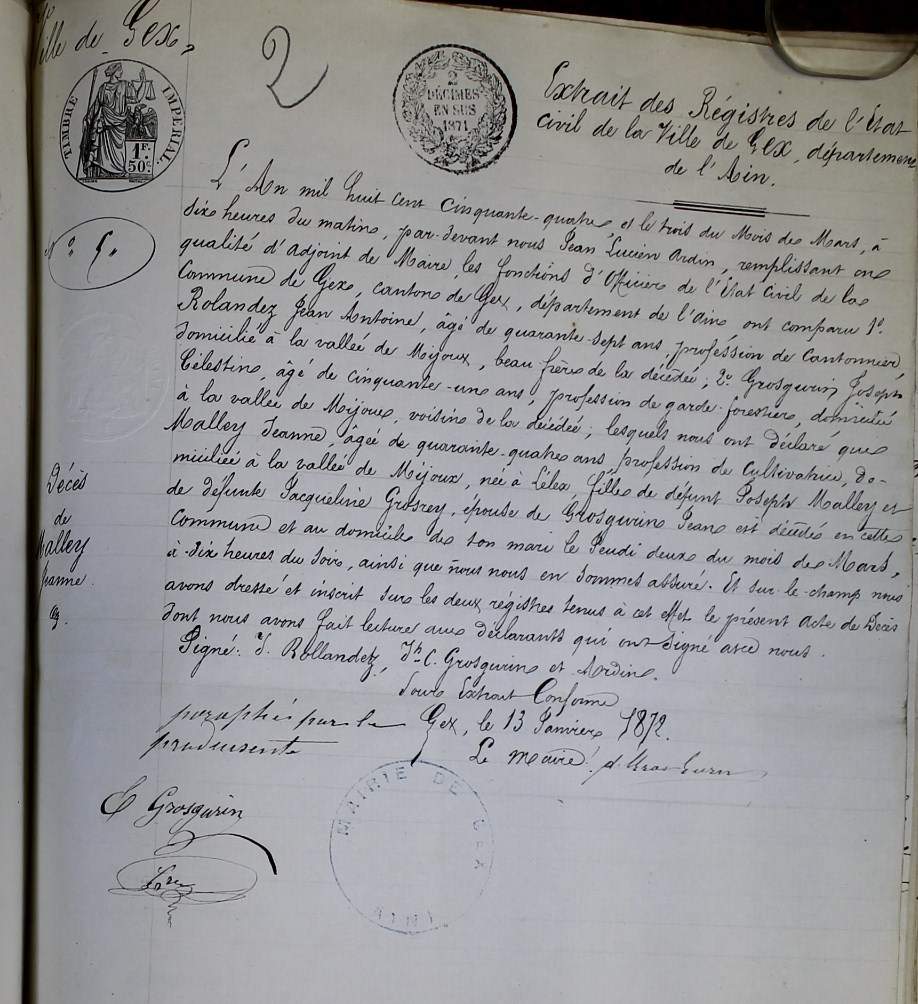 Ville de Gex,
2
TIMBRE IMPERIAL
1F.
50c.
2
DÉCIMES
EN SUS
1871
Extrait des Régistres de l'État
Civil de la Ville de Gex, département
de l'Ain.
N° 5.
L'An mil huit cent cinquante-quatre, et le trois du Mois de Mars, à
dix heures du matin, par-devant nous Jean Lucien Ardin, remplissant en
qualité d'Adjoint de Maire, les fonctions d'Officier de l'État Civil de la
Commune de Gex, canton de Gex, département de l'Ain ont comparu 1°.
Rolandez Jean Antoine, âgé de quarante-sept ans, proféssion de Cantonnier,
domicilié à la vallée de Mijoux, beau frère de la décédée; 2° Grosgurin Joseph
Célestin, âgé de cinquante-un ans, profession de garde-forestier, domicilié
à la vallée de Mijoux, voisin de la décédée; lesquels nous ont déclaré que
Malley Jeanne, âgée de quarante-quatre ans, profession de Cultivatrice, do-
miciliée à la vallée de Mijoux, née à Lélex, fille de défunt Joseph Malley et
de défunte Jacqueline Grosrey, épouse de Grosgurin Jean est décédée en cette
Commune et au domicile de son mari le Jeudi deux du mois de Mars,
à dix heures du soir, ainsi que nous nous en sommes assuré. Et sur-le-champ nous
avons dressé et inscrit sur les deux régistres tenus à cet effet le présent Acte de Décès
dont nous avons fait lecture aux déclarants qui ont signé avec nous.
Signé: J. Rollandez, Jh C. Grosgurin et Ardin.
Décès
de
Malley
Jeanne
Pour Extrait Conforme
Gex, le 13 Janvier 1872.
Le Maire
paraphé par le
produisente
C Grosgurin
MAIRIE DE GEX
AIN